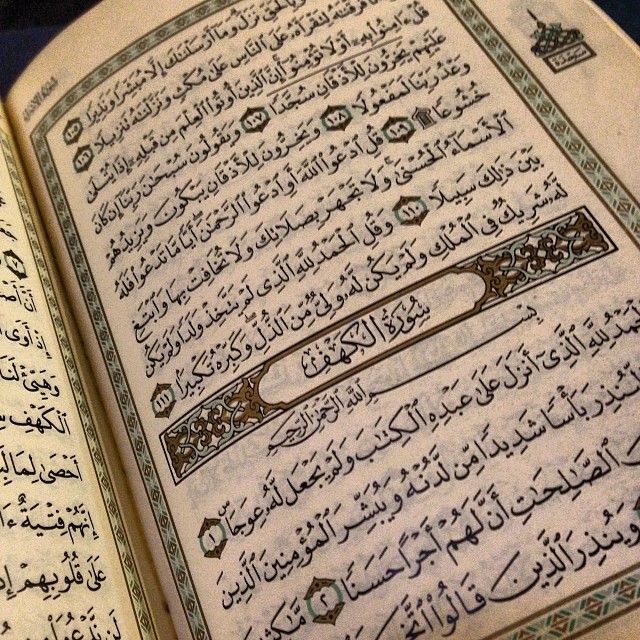 قُلْ ءَامِنُوا۟ بِهِۦٓ أَوْ لَا تُؤْمِنُوٓا۟ إِنَّ ٱلَّذِينَ أُوتُوا۟ ٱلْعِلْمَ مِن قَبْلِهِۦٓ إِذَا يُتْلَىٰ
عَلَيْهِمْ يَخِرُّونَ لِلْأَذْقَانِ سُجَّدًا ١٠٧ وَيَقُولُونَ سُبْحَٰنَ رَبِّنَآ إِن كَانَ
وَعْدُ رَبِّنَا لَمَفْعُولًا ١٠٨ وَيَخِرُّونَ لِلْأَذْقَانِ يَبْكُونَ وَيَزِيدُهُمْ
خُشُوعًا ۩ ١٠٩ قُلِ ٱدْعُوا۟ ٱللَّهَ أَوِ ٱدْعُوا۟ ٱلرَّحْمَٰنَ أَيًّا مَّا تَدْعُوا۟ فَلَهُ
ٱلْأَسْمَآءُ ٱلْحُسْنَىٰ وَلَا تَجْهَرْ بِصَلَاتِكَ وَلَا تُخَافِتْ بِهَا وَٱبْتَغِ
بَيْنَ ذَٰلِكَ سَبِيلًا ١١٠ وَقُلِ ٱلْحَمْدُ لِلَّهِ ٱلَّذِى لَمْ يَتَّخِذْ وَلَدًا وَلَمْ يَكُن
لَّهُۥ شَرِيكٌ فِى ٱلْمُلْكِ وَلَمْ يَكُن لَّهُۥ وَلِىٌّ مِّنَ ٱلذُّلِّ وَكَبِّرْهُ تَكْبِيرًا ١١١
سُورَةُ ٱلْكَهْفِ
بِسْمِ ٱللَّهِ ٱلرَّحْمَٰنِ ٱلرَّحِيمِ
ٱلْحَمْدُ لِلَّهِ ٱلَّذِىٓ أَنزَلَ عَلَىٰ عَبْدِهِ ٱلْكِتَٰبَ وَلَمْ يَجْعَل لَّهُۥ عِوَجَا ١
لِّيُنذِرَ بَأْسًا شَدِيدًا مِّن لَّدُنْهُ وَيُبَشِّرَ ٱلْمُؤْمِنِينَ ٱلَّذِينَ
ٱلصَّٰلِحَٰتِ أَنَّ لَهُمْ أَجْرًا حَسَنًا ٢ مَّٰكِثِينَ
وَيُنذِرَ ٱلَّذِينَ قَالُوا۟ ٱتَّخَذَ
إِذْ أَوَى
وَهَيِّئْ لَنَا
ٱلْكَهْفِ
أَحْصَىٰ لِمَا
إِنَّهُمْ فِتْيَةٌ
عَلَىٰ قُلُوبِهِمْ إِذْ
لَن نَّدْعُوَا۟